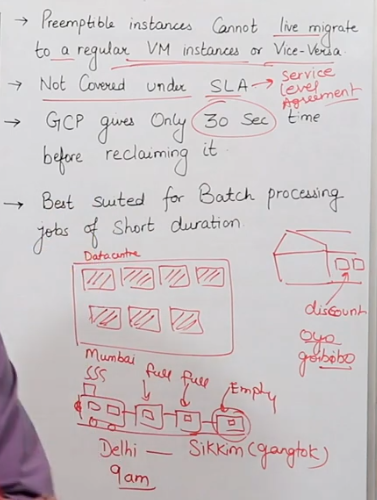 → Preemptible instances Cannot live migrate
to a regular VM instances or Vice-Versa.
→ Not Covered under SLA → Service
Level
Agreement
→ GCP gives Only 30 Sec time
before reclaiming it.
→ Best suited for Batch processing
jobs of Short duration
Datacentre
discount
oyo
goibibo
Mumbai full full Empty
SSS
Delhi — Sikkim (gangtok)
9am